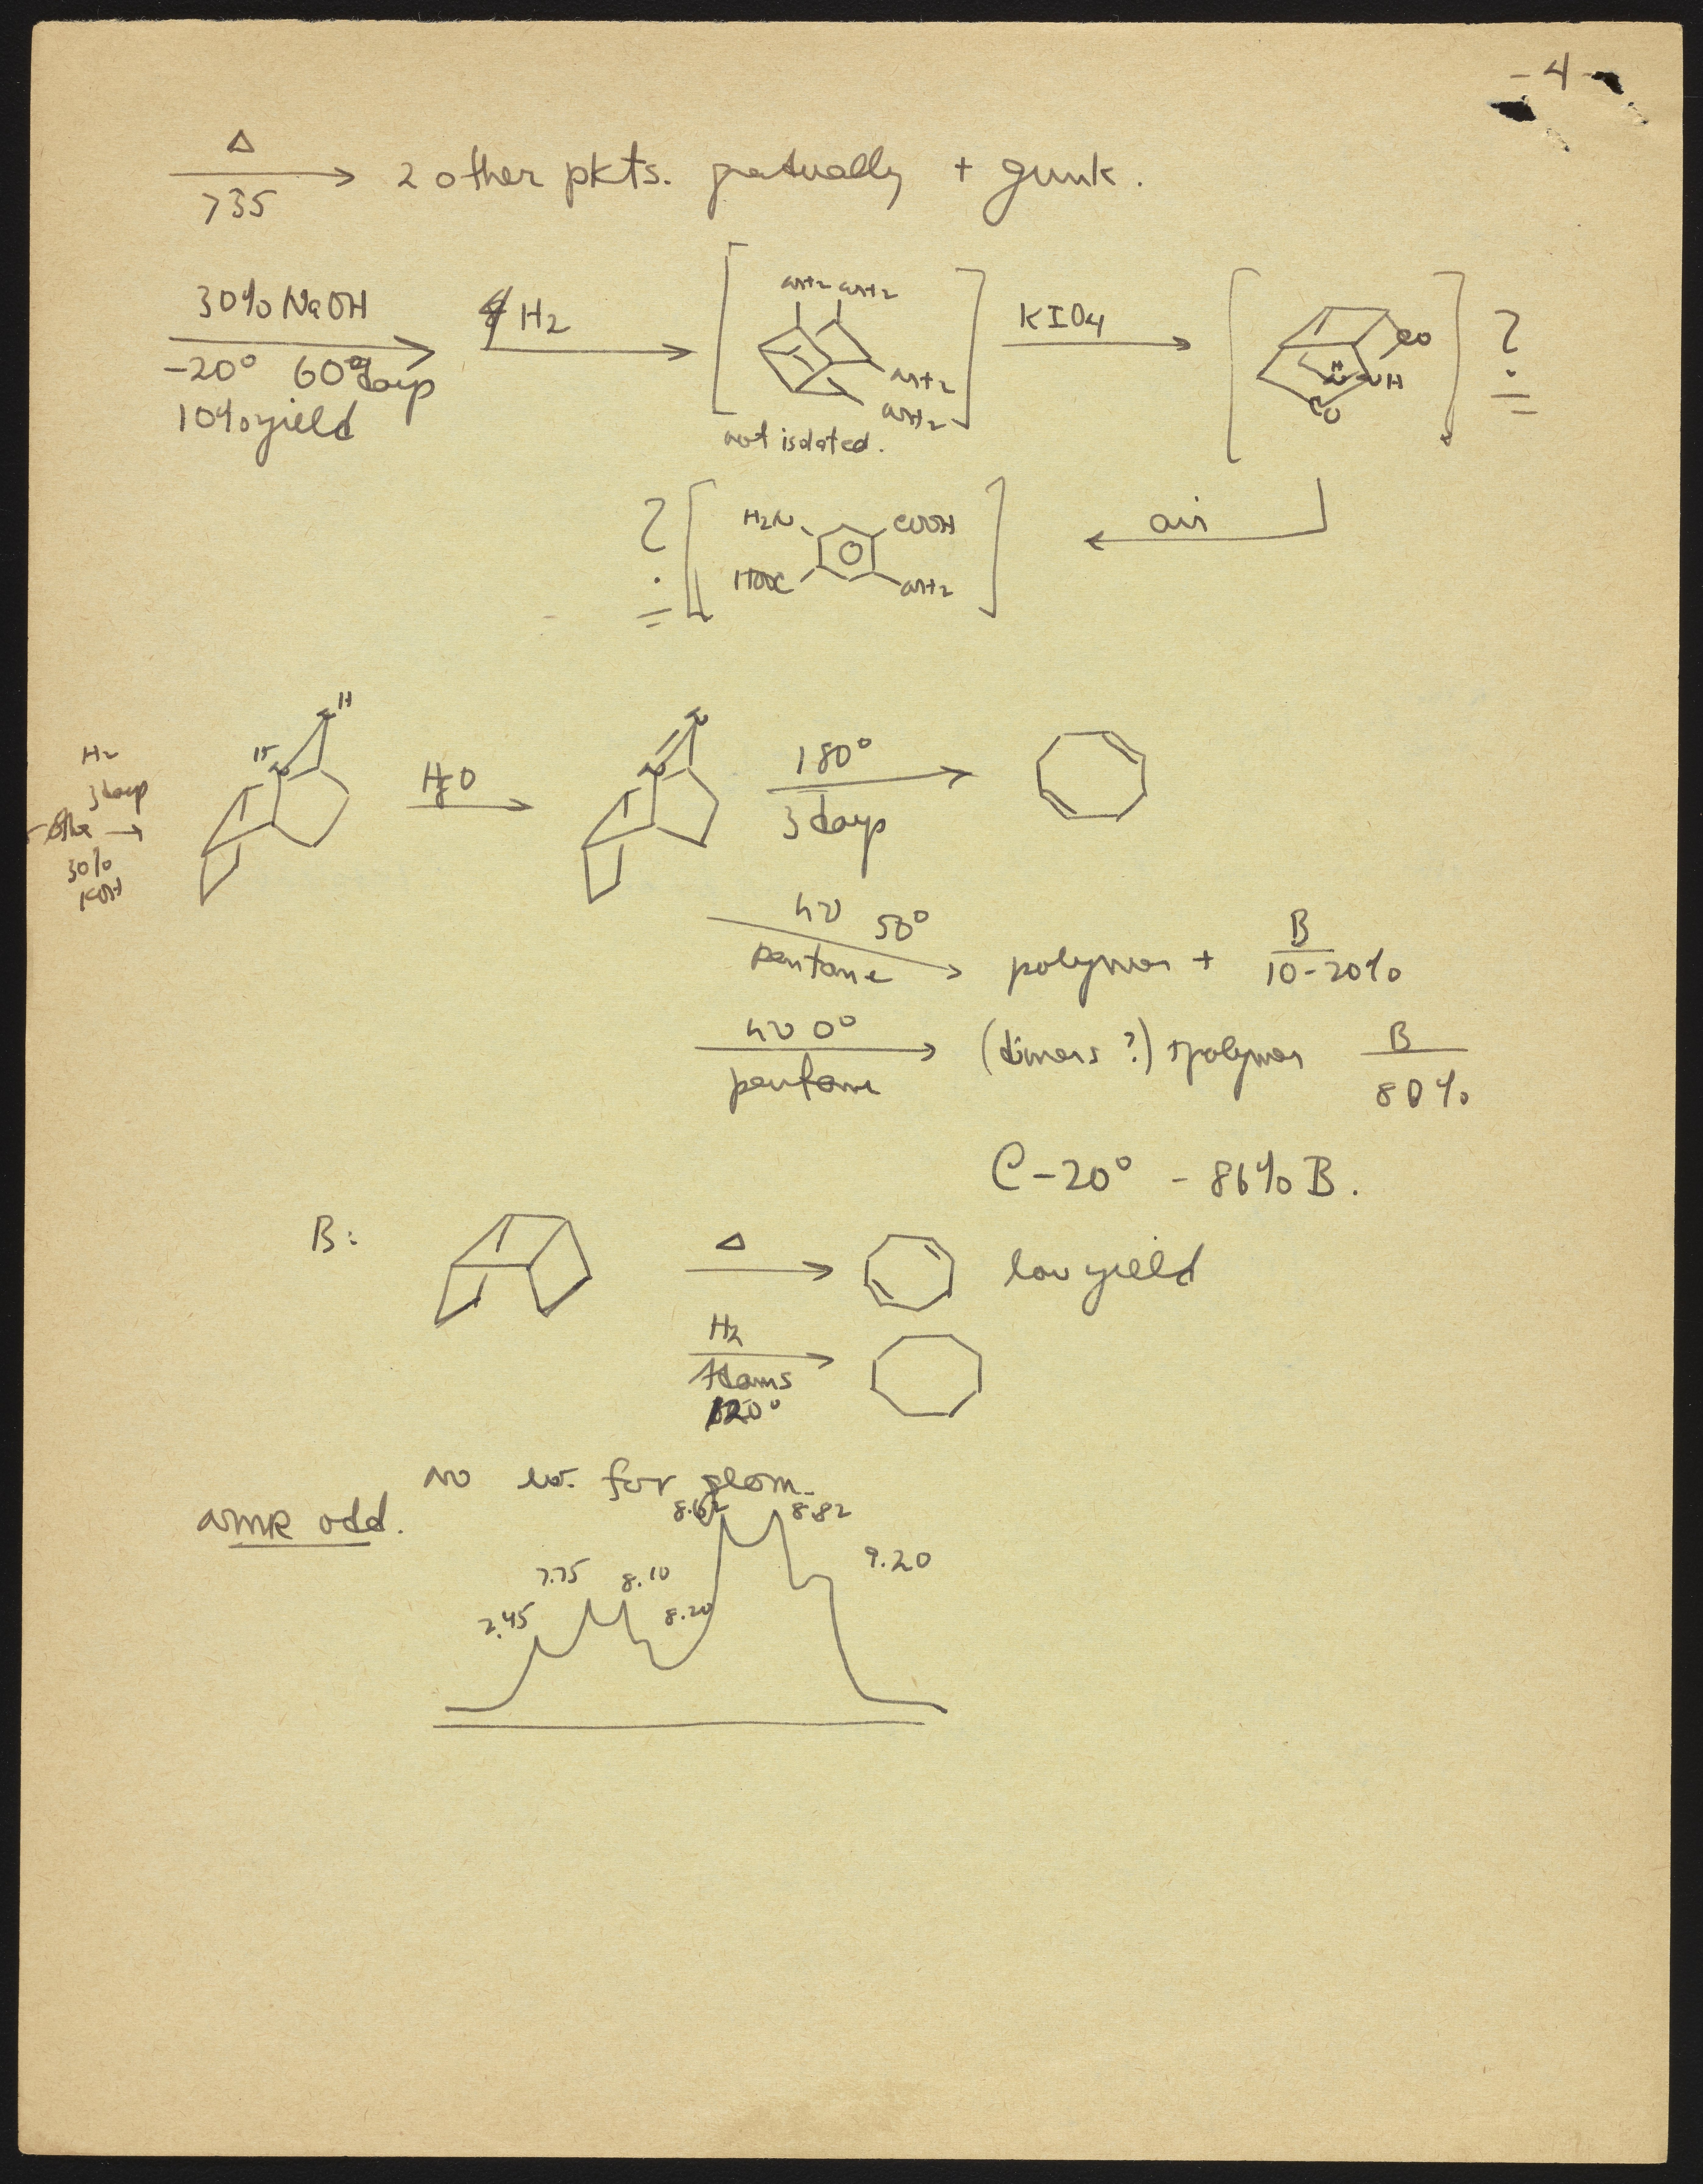 - 4 -
Δ
>35
2 other pkts. gradually + gunk.
30% NaOH
-20° 60 days
10% yield
H2
NH2 NH2
NH2
NH2
not isolated.
KIO4
CO
NH
CO
?
air
?
H2N
COOH
HOOC
NH2
H
N
H2
3 days
30%
KOH
N
N
180°
3 days
hν 50°
pentane
polymer + B
10-20%
hν 0°
pentane
(dimers ?) + polymer B
80%
C -20° - 86% B.
B:
Δ
low yield
H2
Adams
120°
no ev. for geom.
NMR odd.
8.62
8.82
9.20
7.75
8.10
8.20
7.45